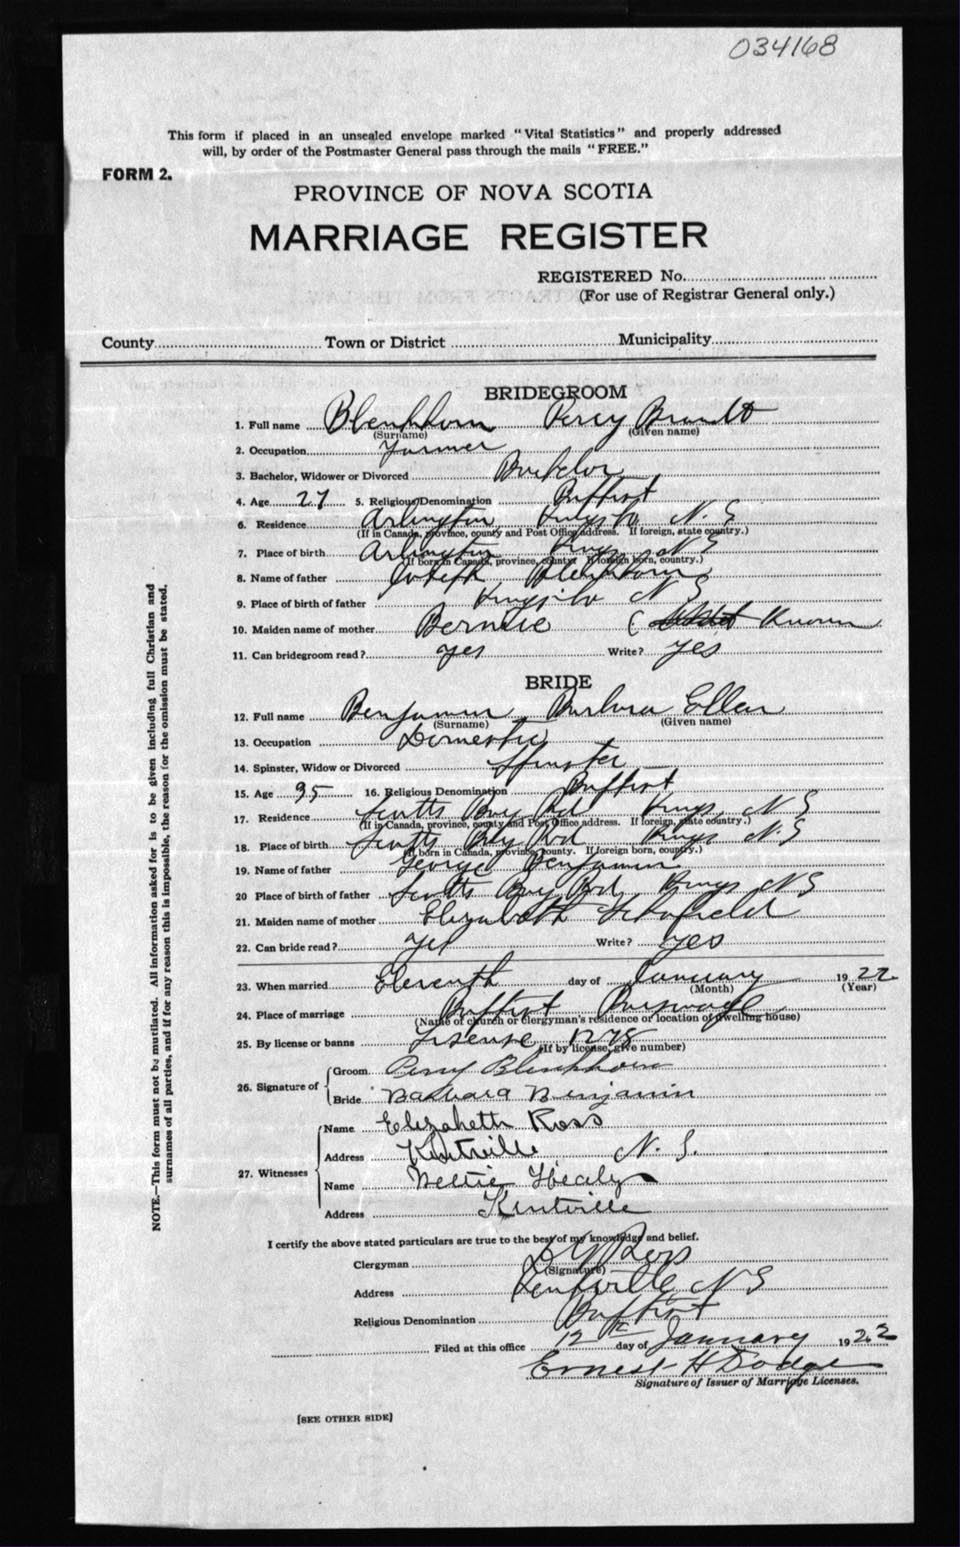 034168
This form if placed in an unsealed envelope marked "Vital Statistics" and properly addressed
will, by order of the Postmaster General pass through the mails "FREE."
FORM 2.
PROVINCE OF NOVA SCOTIA
MARRIAGE REGISTER
REGISTERED No.
(For use of Registrar General only.)
County Town or District Municipality
BRIDEGROOM
1. Full name Blenkhorn Percy Brandt
(Surname) (Given name)
2. Occupation Farmer
3. Bachelor, Widower or Divorced Bachelor
4. Age 27 5. Religious Denomination Baptist
6. Residence Arlington, Kings Co N. S
(If in Canada, province, county and Post Office address. If foreign, state country.)
7. Place of birth Arlington Kings N S
(If born in Canada, province, county. If foreign born, country.)
8. Name of father Joseph Blenkhorn
9. Place of birth of father Kings Co N S
10. Maiden name of mother Bernice ( Known
11. Can bridegroom read? yes Write? yes
BRIDE
12. Full name Benjamin, Barbara Ellen
(Surname) (Given name)
13. Occupation Domestic
14. Spinster, Widow or Divorced Spinster
15. Age 35 16. Religious Denomination Baptist
17. Residence Scotts Bay Rd Kings N S
(If in Canada, province, county and Post Office address. If foreign, state country.)
18. Place of birth Scotts Bay Rd Kings N. S
(If born in Canada, province, county. If foreign born, country.)
19. Name of father George Benjamin
20 Place of birth of father Scotts Bay Rd, Kings N S
21. Maiden name of mother Elizabeth Schofield
22. Can bride read? yes Write? yes
23. When married Eleventh day of January 1922
(Month) (Year)
24. Place of marriage Baptist Parsonage
(Name of church or clergyman's residence or location of dwelling house)
25. By license or banns License
(If by license, give number)
26. Signature of Groom Percy Blenkhorn
Bride Barbara Benjamin
27. Witnesses Name Elizabeth Ross
Address Kentville N. S.
Name Nettie Healy
Address Kentville
I certify the above stated particulars are true to the best of my knowledge and belief.
Clergyman Ross
(Signature)
Address Kentville N S
Religious Denomination Baptist
Filed at this office 12th day of January 1922
Ernest H Dodge
Signature of Issuer of Marriage Licenses.
[SEE OTHER SIDE]
NOTE.—This form must not be mutilated. All information asked for is to be given including full Christian and
surnames of all parties, and if for any reason this is impossible, the reason for the omission must be stated.